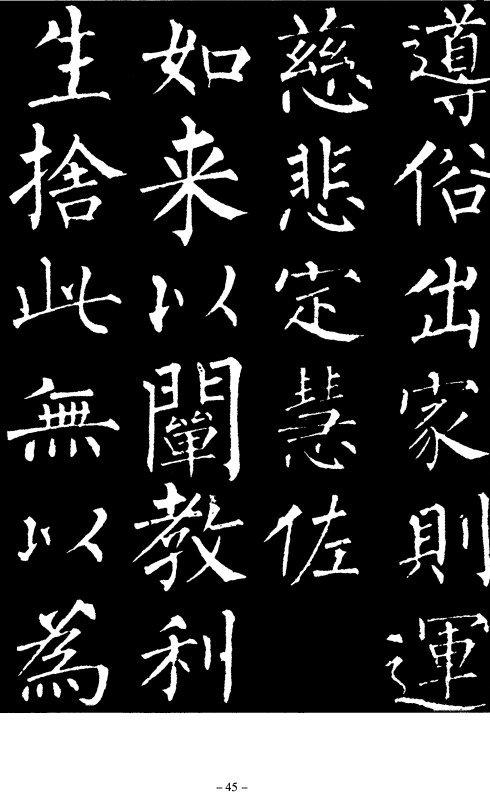 導俗出家則運
慈悲定慧佐
如来以闡教利
生捨此無以為
－45－